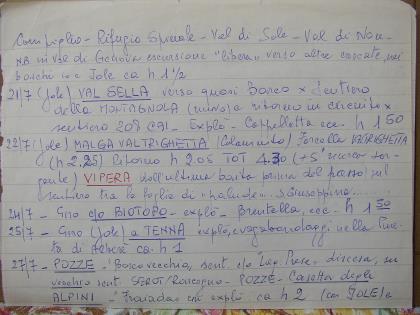 Campiglio - Rifugio Spinale - Val di Sole - Val di Non -
NB in Val di Genova escursione "libera" verso altre cascate, nei
boschi io e Jole ca h 1½
21/7 (Jole) VAL SELLA verso quasi Barco x Sentiero
della MONTAGNOLA (miros) a ritorno in circuito x
sentiero 208 CAI - Explò - Cappelletta ecc. h 1 50
22/7 (Jole) MALGA VALTRIGHETTA (Calamento) Forcella VALTRIGHETTA
(h 2.25) ritorno h 2 05 TOT 4.30 (+5' ricerca sor-
gente) VIPERA dell'ultima baita prima del passo) sul
sentiero tra le foglie di "palude"
24/7 - Giro c/o BIOTOPO - explò - Brentella, ecc. h 1 50
25/7 - Giro (Jole) a TENNA explò, e vagabondaggi nella Pine-
ta di Alberè ca. h 1
27/7 - POZZE - "Bosco vecchio, sent. c/o discesa, su
vecchio sent. SEROT/Roncegno - POZZE - Casetta degli
ALPINI - explò ca h 2 (con JOLE)